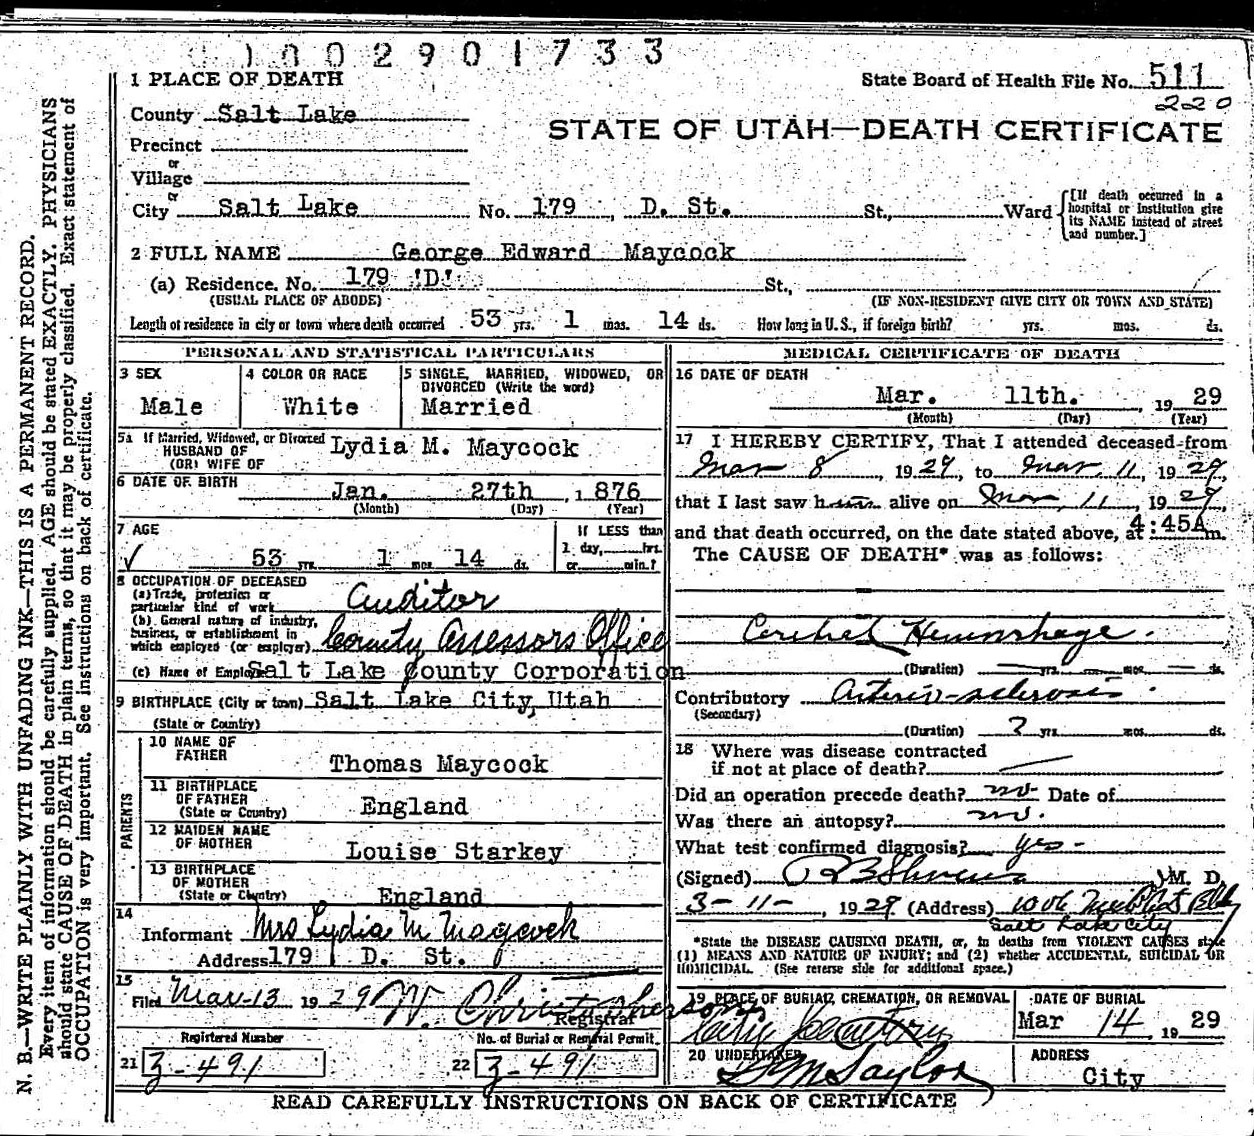 0 0 2 9 0 1 7 3 3
1 PLACE OF DEATH
State Board of Health File No. 511
220
County Salt Lake
STATE OF UTAH—DEATH CERTIFICATE
Precinct
or
Village
or
City Salt Lake No. 179 D. St. St., Ward
[If death occurred in a hospital or institution give its NAME instead of street and number.]
2 FULL NAME George Edward Maycock
(a) Residence. No. 179 'D' St.,
(USUAL PLACE OF ABODE) (IF NON-RESIDENT GIVE CITY OR TOWN AND STATE)
Length of residence in city or town where death occurred 53 yrs. 1 mos. 14 ds. How long in U.S., if foreign birth? yrs. mos. ds.
PERSONAL AND STATISTICAL PARTICULARS
3 SEX
Male
4 COLOR OR RACE
White
5 SINGLE, MARRIED, WIDOWED, OR
DIVORCED (Write the word)
Married
5a If Married, Widowed, or Divorced
HUSBAND OF
(OR) WIFE OF
Lydia M. Maycock
6 DATE OF BIRTH Jan. 27th, 1876
(Month) (Day) (Year)
7 AGE
53 yrs. 1 mos. 14 ds.
If LESS than
1 day, hrs.
or min.?
8 OCCUPATION OF DECEASED
(a) Trade, profession or
particular kind of work Auditor
(b) General nature of industry,
business, or establishment in
which employed (or employer) County Assessors Office
(c) Name of Employer Salt Lake County Corporation
9 BIRTHPLACE (City or town) Salt Lake City, Utah
(State or Country)
PARENTS
10 NAME OF
FATHER
Thomas Maycock
11 BIRTHPLACE
OF FATHER
(State or Country)
England
12 MAIDEN NAME
OF MOTHER
Louise Starkey
13 BIRTHPLACE
OF MOTHER
(State or Country)
England
14
Informant Mrs Lydia M Maycock
Address 179 D. St.
15
Filed Mar 13 1929 W. Christopherson
Registrar
Registered Number
21 3-491
No. of Burial or Removal Permit.
22 3-491
MEDICAL CERTIFICATE OF DEATH
16 DATE OF DEATH
Mar. 11th. , 1929
(Month) (Day) (Year)
17 I HEREBY CERTIFY, That I attended deceased from
Mar 8, 1929, to Mar. 11, 1929,
that I last saw him alive on Mar, 11, 1929
and that death occurred, on the date stated above, at 4:45A m.
The CAUSE OF DEATH* was as follows:
Cerebral Hemorrhage.
(Duration) yrs. mos. ds.
Contributory Arterio-sclerosis.
(Secondary)
(Duration) 2 yrs. mos. ds.
18 Where was disease contracted
if not at place of death?
Did an operation precede death? no Date of
Was there an autopsy? no.
What test confirmed diagnosis? yes-
(Signed) M. D.
3-11-, 1929 (Address) 1006
Salt Lake City
*State the DISEASE CAUSING DEATH, or, in deaths from VIOLENT CAUSES state
(1) MEANS AND NATURE OF INJURY; and (2) whether ACCIDENTAL, SUICIDAL OR
HOMICIDAL. (See reverse side for additional space.)
19 PLACE OF BURIAL, CREMATION, OR REMOVAL
City Cemetery
DATE OF BURIAL
Mar 14, 1929
20 UNDERTAKER
S. M. Taylor
ADDRESS
City
READ CAREFULLY INSTRUCTIONS ON BACK OF CERTIFICATE
N. B.—WRITE PLAINLY WITH UNFADING INK—THIS IS A PERMANENT RECORD.
Every item of information should be carefully supplied. AGE should be stated EXACTLY. PHYSICIANS
should state CAUSE OF DEATH in plain terms, so that it may be properly classified. Exact statement of
OCCUPATION is very important. See instructions on back of certificate.